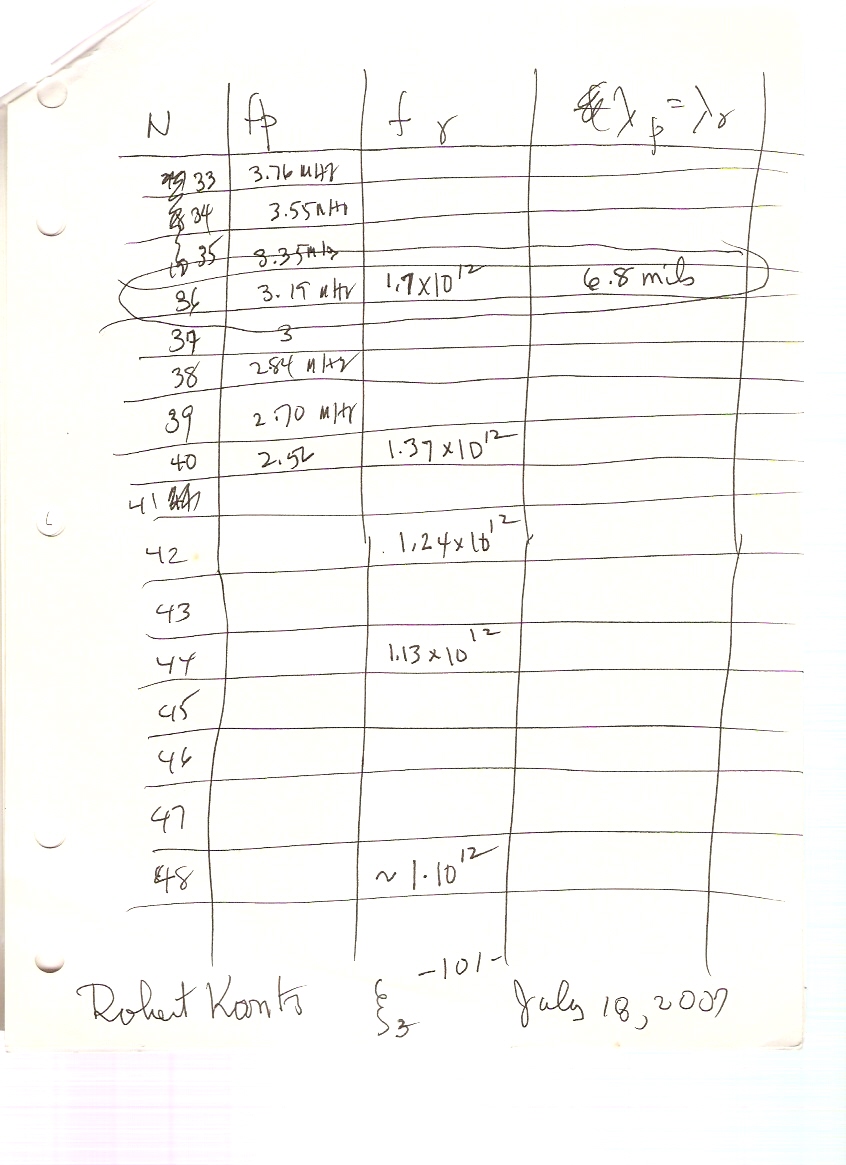 N fp fγ λp = λγ
33 3.76 MHz
34 3.55 MHz
35 3.35 MHz
36 3.19 MHz 1.7x10¹² 6.8 mils
37 3
38 2.84 MHz
39 2.70 MHz
40 2.52 1.37x10¹²
41
42 1.24x10¹²
43
44 1.13x10¹²
45
46
47
48 ~1·10¹²
-101-
Robert Konts ξ3 July 18, 2007